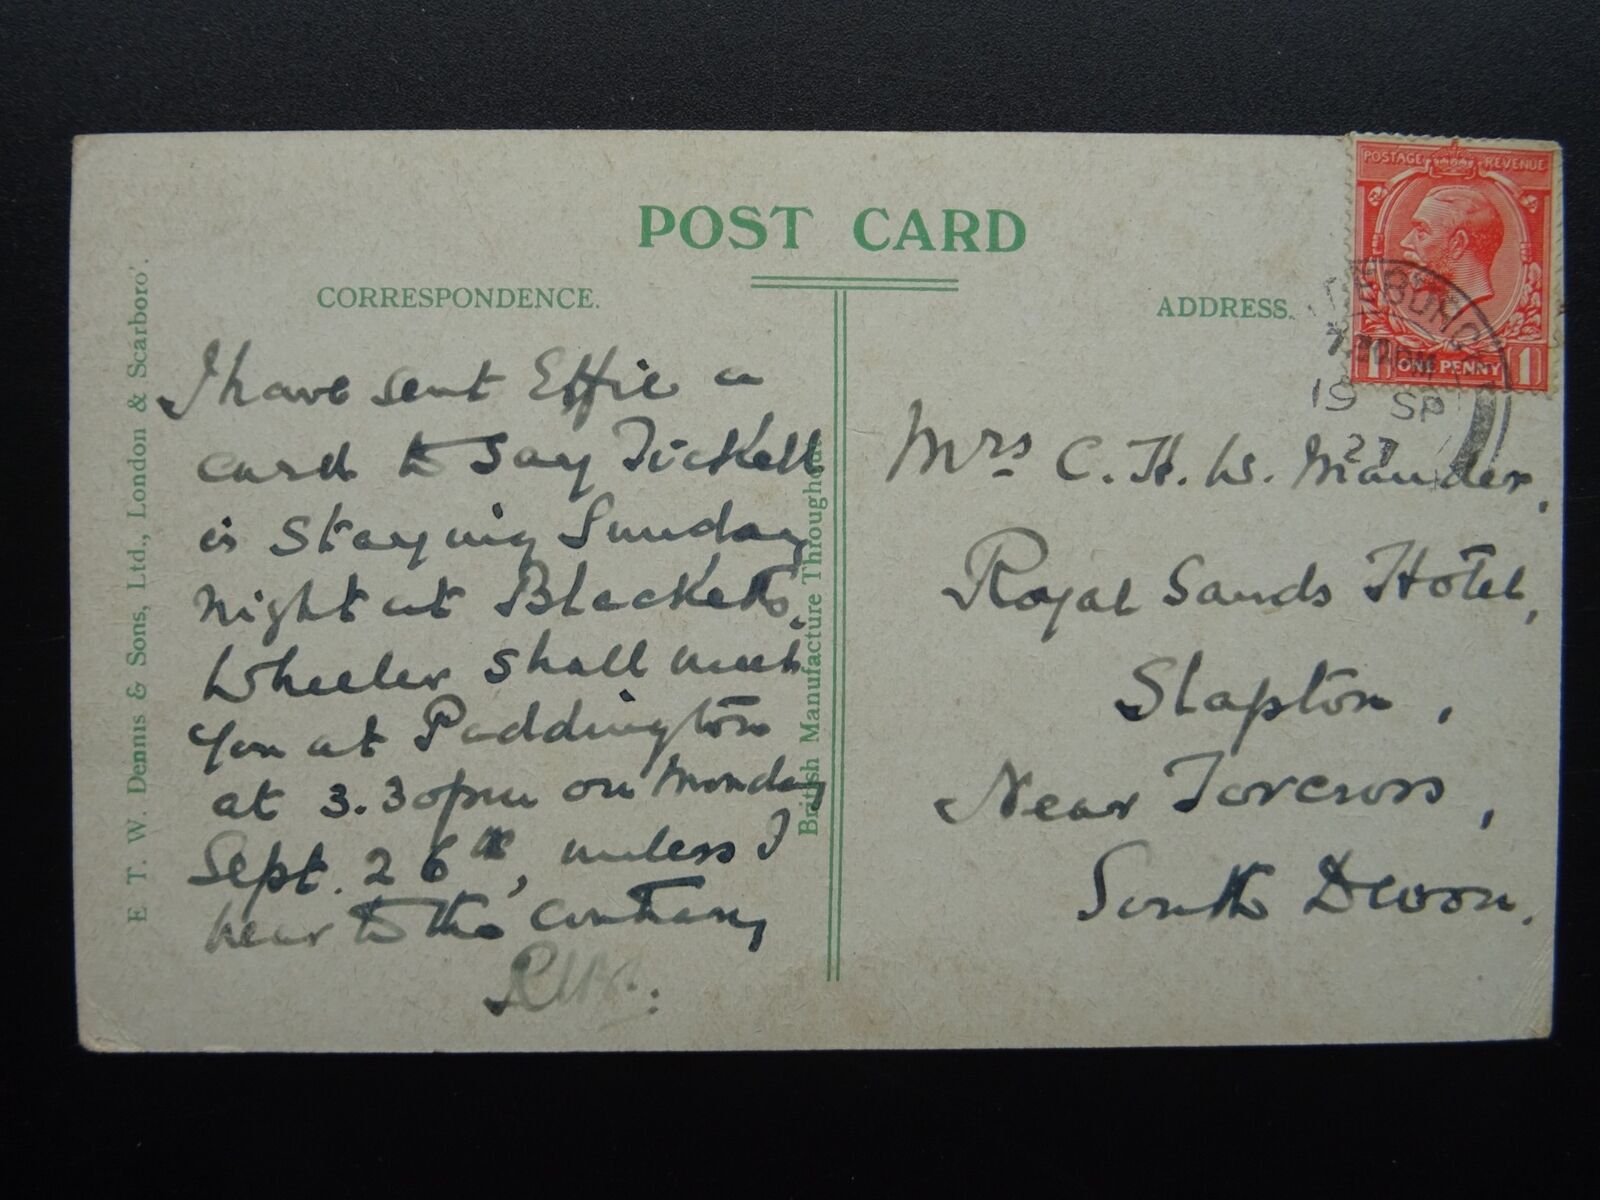 POST CARD
CORRESPONDENCE.
ADDRESS.
E. T. W. Dennis & Sons, Ltd., London & Scarboro'.
British Manufacture Throughout
I have sent Effie a
card to say Tickell
is staying Sunday
night at Blacketts.
Wheeler shall meet
you at Paddington
at 3.30pm on Monday
Sept. 26th, unless I
hear to the contrary
POSTAGE REVENUE
1 ONE PENNY 1
19 SP
27
Mrs C. H. W. Mander,
Royal Sands Hotel,
Slapton,
Near Torcross,
South Devon.